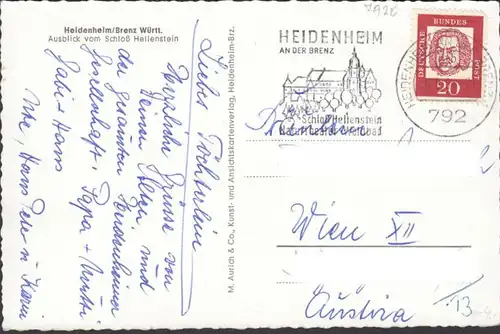 7926
Heidenheim/Brenz Württ.
Ausblick vom Schloß Hellenstein
Liebes Töchterlein
Herzliche Grüsse von
Deinen Eltern und
der gesamten Heidenheimer
Papa + Mutti
Gabi + Hans
Ute, Hans Peter u. Karin
M. Aurich & Co., Kunst- und Ansichtskartenverlag, Heidenheim-Brz.
HEIDENHEIM
AN DER BRENZ
Schloß Hellenstein
Naturtheater
792
DEUTSCHE BUNDESPOST
20
Wien XII
Austria
13